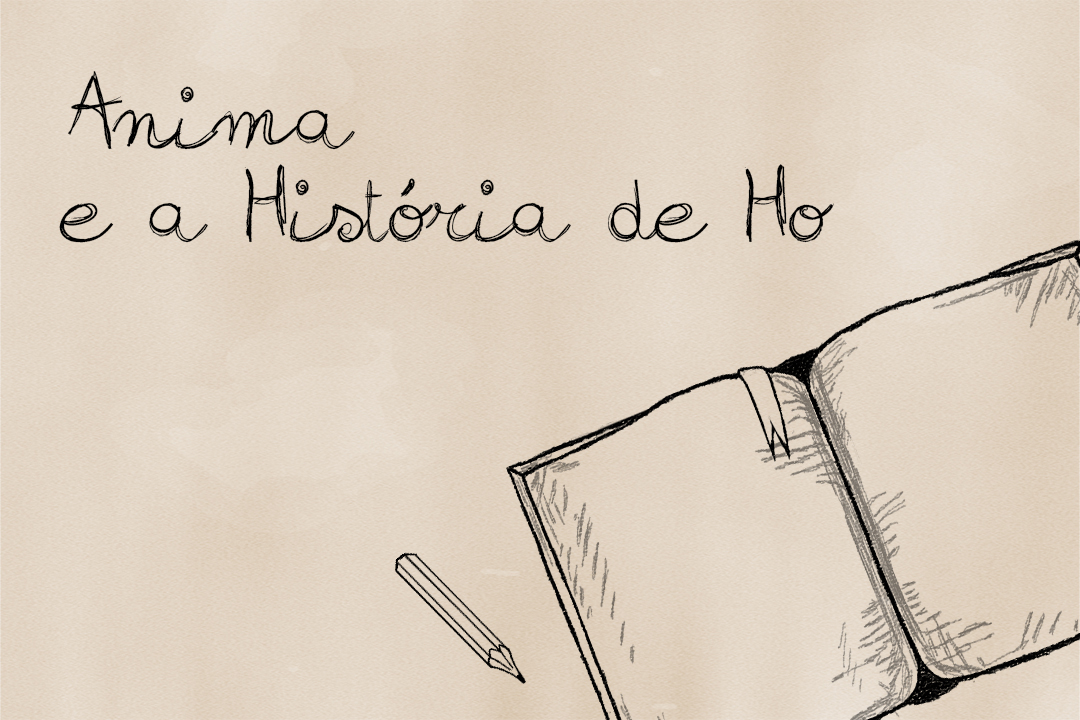 Anima
e a História de Ho